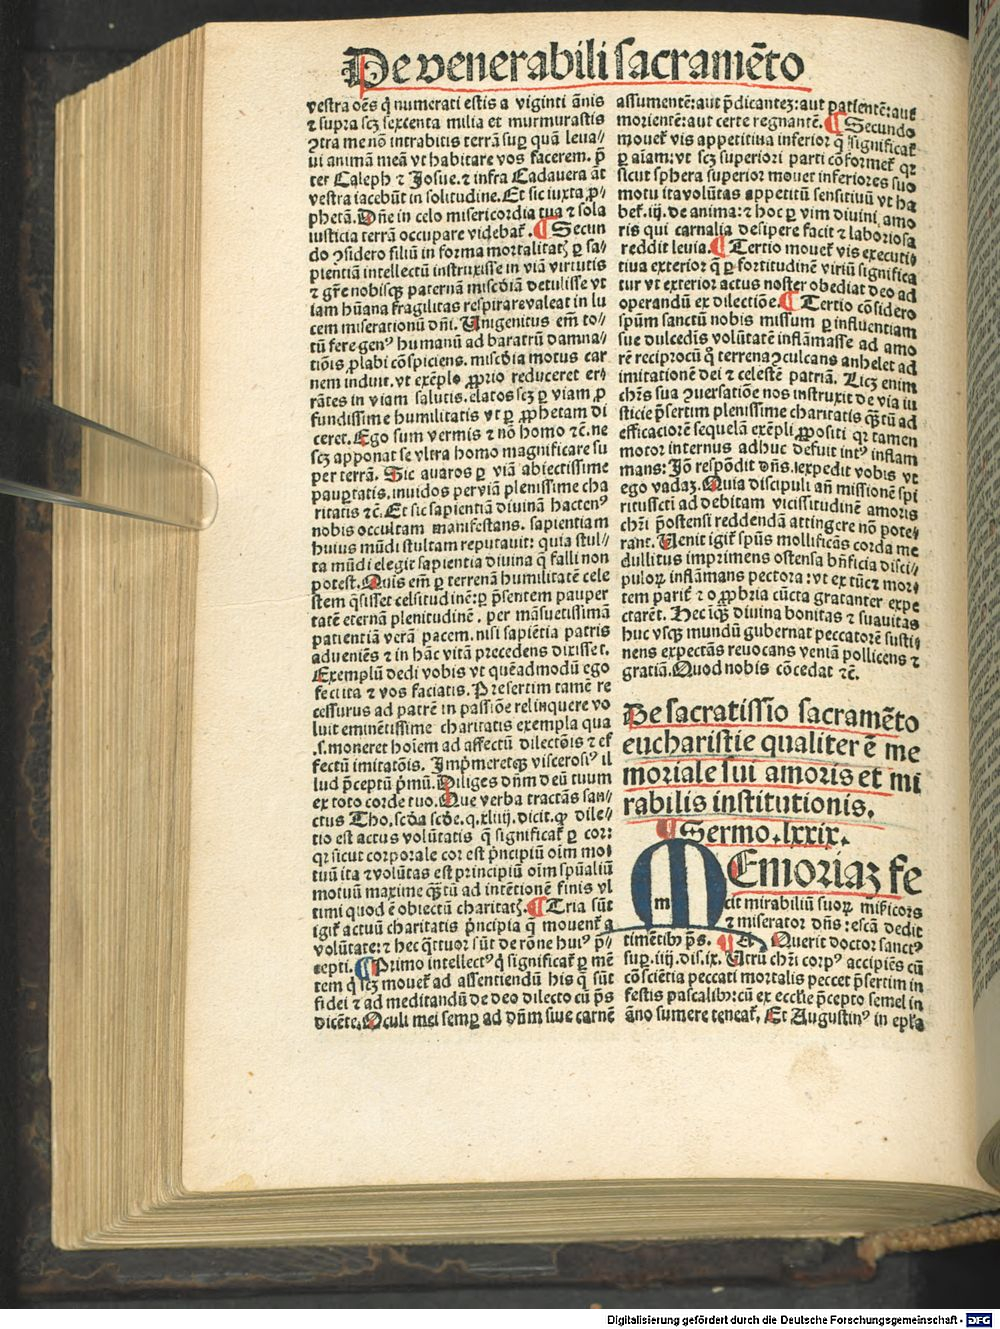 De venerabili sacramẽto
vestra oẽs q̃ numerati estis a viginti ãnis
⁊ supra scꝫ sexcenta milia et murmurastis
ꝯtra me nõ intrabitis terrã suꝑ quã leua/
ui animã meã vt habitare vos facerem. p̃
ter Caleph ⁊ Josue. ⁊ infra Cadauera ãt
vestra iacebũt in solitudine. Et sic iuxta ꝓ/
phetã. Dñe in celo misericordia tua ⁊ sola
iusticia terrã occupare videbaẗ. ¶ Secun
do ꝯsidero filiũ in forma mortalitatꝭ ꝑ sa/
pientiam intellectũ instruxisse in viã virtutis
⁊ gr̃e nobisqꝫ paternã mis̃cdiã detulisse vt
iam hũana fragilitas respirare valeat in lu
cem miserationũ dñi. Unigenitus em̃ to/
tũ fere genꝰ humanũ ad baratrũ damna/
tiõis ꝓlabi cõspiciens. mis̃cdia motus car
nem induit. vt exẽplo ꝓprio reduceret er/
rãtes in viam salutis. elatos scꝫ ꝑ viam ꝓ
fundissime humilitatis vt ꝑ ꝓphetam di
ceret. Ego sum vermis ⁊ nõ homo ⁊c̃. ne
scꝫ apponat se vltra homo magnificare su
per terrã. Sic auaros ꝑ viã abiectissime
pauꝑtatis. inuidos per viã plenissime cha
ritatis ⁊c̃. Et sic sapientiã diuinã hactenꝰ
nobis occultam manifestans. sapientiam
huius mũdi stultam reputauit: quia stul/
ta mũdi elegit sapientia diuina q̃ falli non
potest. Quis em̃ ꝑ terrenã humilitatẽ cele
stem q̃sisset celsitudinẽ: ꝑ p̃sentem pauper
tatẽ eternã plenitudinẽ. per mãsuetissimã
patientiã verã pacem. nisi sapiẽtia patris
adueniẽs ⁊ in hãc vitã precedens dixisset.
Exemplũ dedi vobis vt quẽadmodũ ego
feci ita ⁊ vos faciatis. Presertim tamẽ re
cessurus ad patrẽ in passiõe relinquere vo
luit eminẽtissime charitatis exempla qua
.s. moneret hoĩem ad affectũ dilectõis ⁊ ef
fectũ imitatõis. Imp̃meretqꝫ visceroſiꝰ il
lud p̃ceptũ p̃mũ. Diliges dñm deũ tuum
ex toto corde tuo. Que verba tractãs san/
ctus Tho. scd̃a scd̃e. q. xliiij. dicit. ꝙ dile/
tio est actus volũtatis q̃ significaẗ ꝑ cor:
qꝛ sicut corporale cor est p̃ncipiũ oĩm mo/
tiuũ ita ⁊ volũtas est principiũ oĩm sp̃ualiũ
motuũ maxime q̃tũ ad intẽtionẽ finis vl
timi quod ẽ obiectũ charitatꝭ. ¶ Tria sũt
igiẗ actuũ charitatis p̃ncipia q̃ mouenẗ a
volũtate: ⁊ hec q̃ttuor sũt de rõne huiꝰ p̃/
cepti. ¶ Primo intellectꝰ q̃ significaẗ ꝑ mẽ
tem q̃ scꝫ moueẗ ad assentiendũ his q̃ sũt
fidei ⁊ ad meditandũ de deo dilecto cũ p̃s
dicẽte. Oculi mei semꝑ ad dñm siue carnẽ
assumentẽ: aut p̃dicantẽ: aut patientẽ: aut
morientẽ: aut certe regnantẽ. ¶ Secundo
moueẗ vis appetitiua inferior q̃ significaẗ
ꝑ aĩam: vt scꝫ superiori parti cõformeẗ qꝛ
sicut sphera superior mouet inferiores suo
motu ita volũtas appetitũ sensitiuũ vt ha
beẗ. iij. de anima: ⁊ hoc ꝑ vim diuini amo
ris qui carnalia desipere facit ⁊ laboriosa
reddit leuia. ¶ Tertio moueẗ vis executi/
tiua exterior q̃ ꝑ fortitudinẽ viriũ significa
tur vt exterior actus noster obediat deo ad
operandũ ex dilectiõe. ¶ Tertio cõsidero
spũm sanctũ nobis missum ꝑ influentiam
sue dulcedĩs volũtatẽ inflãmasse ad amo
rẽ reciprocũ q̊ terrena ꝯculcans anhelet ad
imitationẽ dei ⁊ celestẽ patriã. Licꝫ enim
chr̃s sua ꝯuersatiõe nos instruxit de via iu
sticie p̃sertim plenissime charitatis q̃tũ ad
efficaciorẽ sequelã exẽpli ꝓpositi qꝛ tamen
motor internus adhuc defuit intꝰ inflam
mans: Iõ respõdit dñs. expedit vobis vt
ego vadaꝫ. Quia discipuli añ missionẽ spi
ritussc̃ti ad debitam vicissitudinẽ amoris
chr̃i p̃ostensi reddendã attingere nõ pote/
rant. Uenit igiẗ spũs mollificãs corda me
dullitus imprimens ostensa bñficia disci/
puloꝝ inflãmans pectora: vt ex tũc ⁊ mor/
tem pariẗ ⁊ oꝓbria cũcta gratanter expe
ctarẽt. Hec iqꝫ diuina bonitas ⁊ suauitas
huc vsqꝫ mundũ gubernat peccatorẽ susti/
nens expectãs reuocans veniã pollicens ⁊
gratiã. Quod nobis cõcedat ⁊c̃.
De sacratissĩo sacramẽto
eucharistie qualiter ẽ me
moriale sui amoris et mi
rabilis institutionis.
¶ Sermo. lxxix.
Memoriaꝫ fe
cit mirabiliũ suoꝝ mis̃icors
⁊ miserator dñs: escã dedit
timẽtibꝰ p̃s. Querit doctor sanctꝰ
suꝑ. iiij. dis. ix. Utrũ chr̃i corpꝰ accipiẽs cũ
cõsciẽtia peccati mortalis peccet p̃sertim in
festis pascalibꝰ: cũ ex ecclie p̃cepto semel in
ãno sumere teneaẗ. Et Augustinꝰ in epl̃a
Digitalisierung gefördert durch die Deutsche Forschungsgemeinschaft - DFG